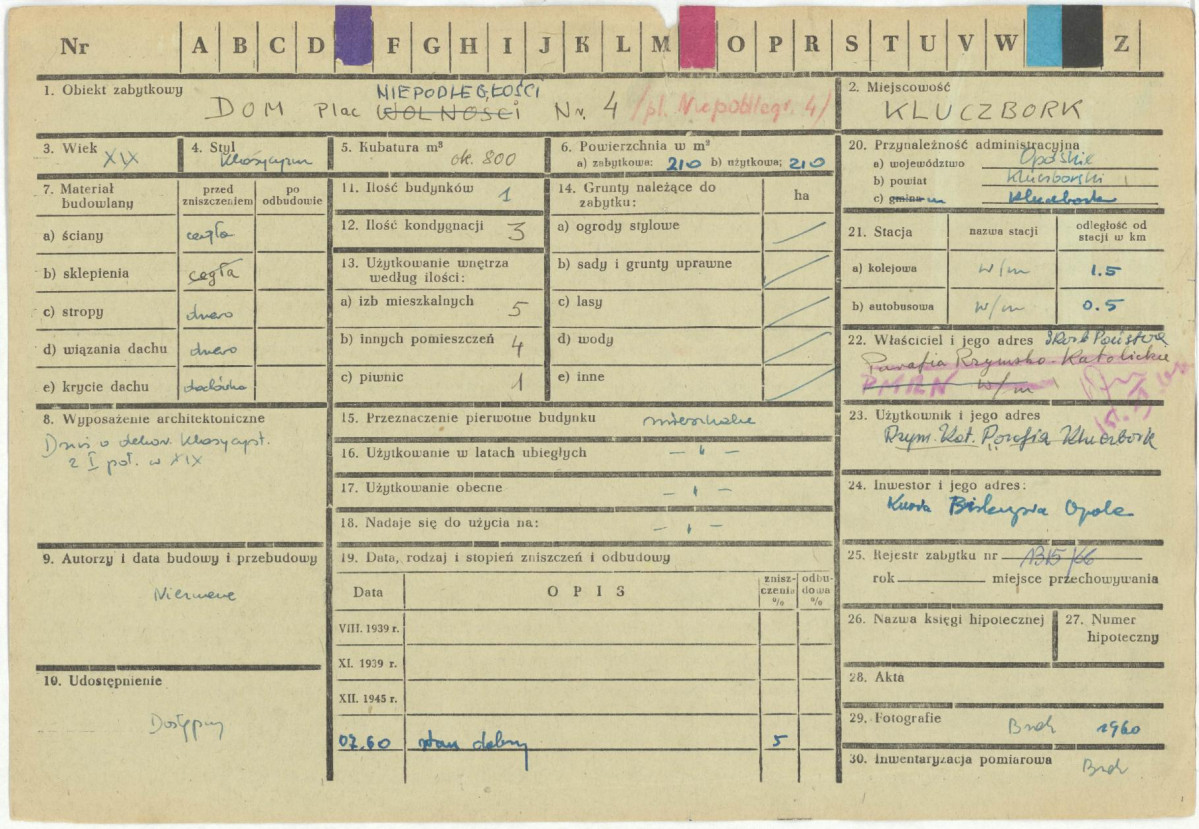 Nr A B C D F G H I J K L M O P R S T U V W Z
1. Obiekt zabytkowy
NIEPODLEGŁOŚCI
DOM Plac WOLNOŚCI Nr. 4 /pl. Niepodległ. 4/
2. Miejscowość
KLUCZBORK
3. Wiek XIX
4. Styl Klasycyzm
5. Kubatura m³ ok. 800
6. Powierzchnia w m²
a) zabytkowa: 210 b) użytkowa: 210
7. Materiał budowlany
przed zniszczeniem
po odbudowie
a) ściany cegła
b) sklepienia cegła
c) stropy drewno
d) wiązania dachu drewno
e) krycie dachu dachówka
8. Wyposażenie architektoniczne
Drzwi o dekor. klasycyst.
z I poł. w XIX
9. Autorzy i data budowy i przebudowy
Nieznane
10. Udostępnienie
Dostępny
11. Ilość budynków 1
12. Ilość kondygnacji 3
13. Użytkowanie wnętrza
według ilości:
a) izb mieszkalnych 5
b) innych pomieszczeń 4
c) piwnic 1
14. Grunty należące do
zabytku:
ha
a) ogrody stylowe
b) sady i grunty uprawne
c) lasy
d) wody
e) inne
15. Przeznaczenie pierwotne budynku mieszkalne
16. Użytkowanie w latach ubiegłych - " -
17. Użytkowanie obecne - " -
18. Nadaje się do użycia na: - " -
19. Data, rodzaj i stopień zniszczeń i odbudowy
Data
OPIS
znisz-
czenia
%
odbu-
dowa
%
VIII. 1939 r.
XI. 1939 r.
XII. 1945 r.
07.60 stan dobry 5
20. Przynależność administracyjna
a) województwo Opolskie
b) powiat Kluczborski
c) gmina m Kluczbork
21. Stacja
nazwa stacji
odległość od
stacji w km
a) kolejowa w/m 1.5
b) autobusowa w/m 0.5
22. Właściciel i jego adres Skarb Państwa
Parafia Rzymsko-Katolicka
PMRN w/m
23. Użytkownik i jego adres
Rzym. Kat. Parafia Kluczbork
24. Inwestor i jego adres:
Kuria Biskupia Opole
25. Rejestr zabytku nr 1315/66
rok miejsce przechowywania
26. Nazwa księgi hipotecznej
27. Numer
hipoteczny
28. Akta
29. Fotografie Brak 1960
30. Inwentaryzacja pomiarowa Brak